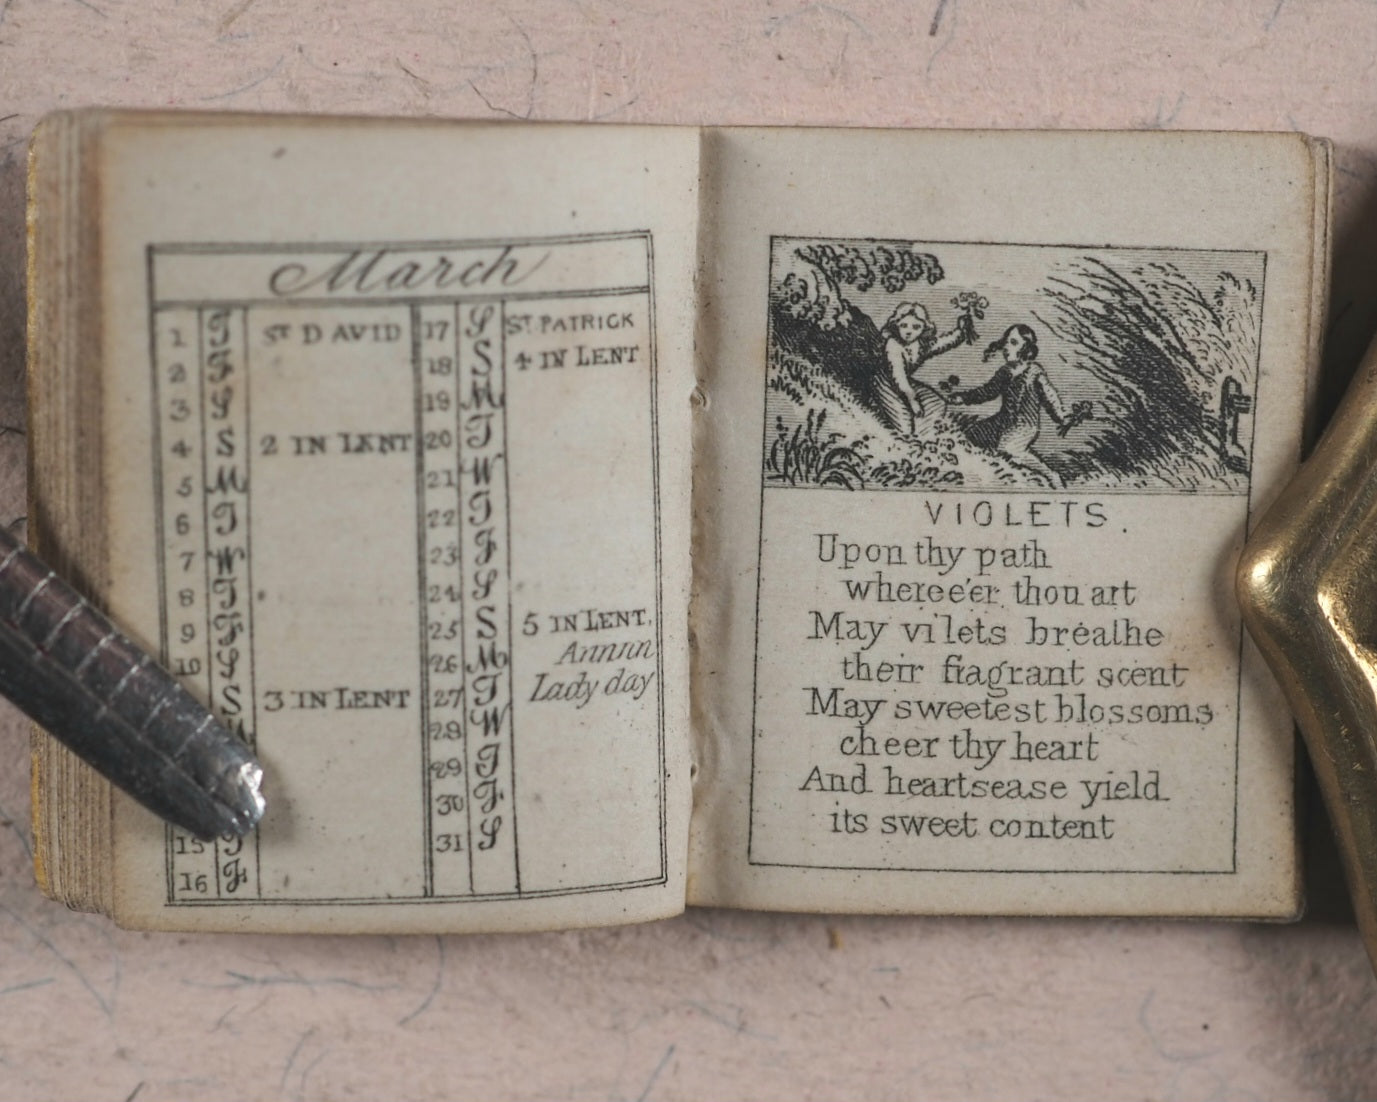 March
1 T ST DAVID
2 F
3 S
4 S 2 IN LENT
5 M
6 T
7 W
8 T
9 F
10 S
S 3 IN LENT
15 T
16 F
17 S ST PATRICK
18 S 4 IN LENT
19 M
20 T
21 W
22 T
23 F
24 S
25 S 5 IN LENT.
26 M Annun
27 T Lady day
28 W
29 T
30 F
31 S
VIOLETS.
Upon thy path
wheree'er thou art
May vilets breathe
their fragrant scent
May sweetest blossoms
cheer thy heart
And heartsease yield
its sweet content